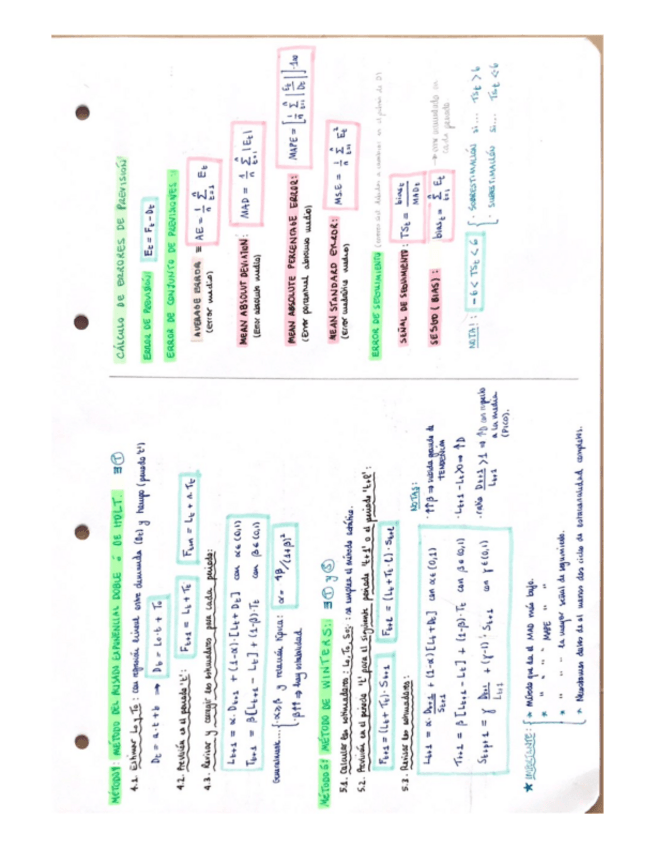 MÉTODO 4: MÉTODO DEL ALISADO EXPONENCIAL DOBLE ó DE HOLT. ∃ Ⓣ
4.1. Estimar L₀ y T₀: con regresión lineal entre demanda (Dt) y tiempo (periodo 't')
Dt = a·t + b → Dt = L₀·t + T₀
4.2. Previsión en el periodo 't': Ft+1 = Lt + Tt Ft+n = Lt + n Tt
4.3. Revisar y corregir los estimadores para cada periodo:
Lt+1 = α·Dt+1 + (1-α)·[Lt + Dt] con α∈(0,1)
Tt+1 = β[Lt+1 - Lt] + (1-β)·Tt con β∈(0,1)
Generalmente... { · α≥β y relación típica: α = 4β/(1+β)²
· β↑↑ ⇒ hay estabilidad.
MÉTODO 5: MÉTODO DE WINTERS: ∃ Ⓣ y Ⓢ
5.1. Calcular los estimadores: L₀, T₀, St: se emplea el método estático.
5.2. Previsión en el periodo 't' para el siguiente periodo 't+1' o el periodo 't+l':
Ft+1 = (Lt + Tt)·St+1 Ft+l = (Lt + Tt·l)·St+l
5.3. Revisar los estimadores:
Lt+1 = α·Dt+1/St+1 + (1-α)[Lt + Dt] con α∈(0,1)
Tt+1 = β[Lt+1 - Lt] + (1-β)·Tt con β∈(0,1)
St+p+1 = γ Dt+1/Lt+1 + (γ-1)·St+1 con γ∈(0,1)
NOTAS:
· ↑↑β ⇒ grande de TENDENCIA
· Lt+1 - Lt > 0 ⇒ ↑D
· ratio Dt+1/Lt+1 > 1 ⇒ ↑D con respecto a la media (PICO).
★ IMPORTANTE: { * Método que da el MAD más bajo.
* " " " " MAPE " "
* " " " la mejor señal de seguimiento.
* Necesitamos datos de al menos dos ciclos de estacionalidad completos.
CÁLCULO DE ERRORES DE PREVISIÓN
ERROR DE PREVISIÓN Et = Ft - Dt
ERROR DE CONJUNTO DE PREVISIONES:
AVERAGE ERROR = AE = 1/n Σ(t=1, n) Et
(error medio)
MEAN ABSOLUT DEVIATION: MAD = 1/n Σ(t=1, n) |Et|
(Error absoluto medio)
MEAN ABSOLUTE PERCENTAGE ERROR: MAPE = [1/n Σ(t=1, n) |Et/Dt|]·100
(Error porcentual absoluto medio)
MEAN STANDARD ERROR: MSE = 1/n Σ(t=1, n) Et²
(error cuadrático medio)
ERROR DE SEGUIMIENTO (errores debidos a cambios en el patrón de D)
SEÑAL DE SEGUIMIENTO: TSt = biast/MADt
SESGO (BIAS): biast = Σ(t=1, n) Et → con acumulado en cada periodo
NOTA!: -6 < TSt < 6 { · SOBREESTIMACIÓN si... TSt > 6
· SUBESTIMACIÓN si... TSt < 6